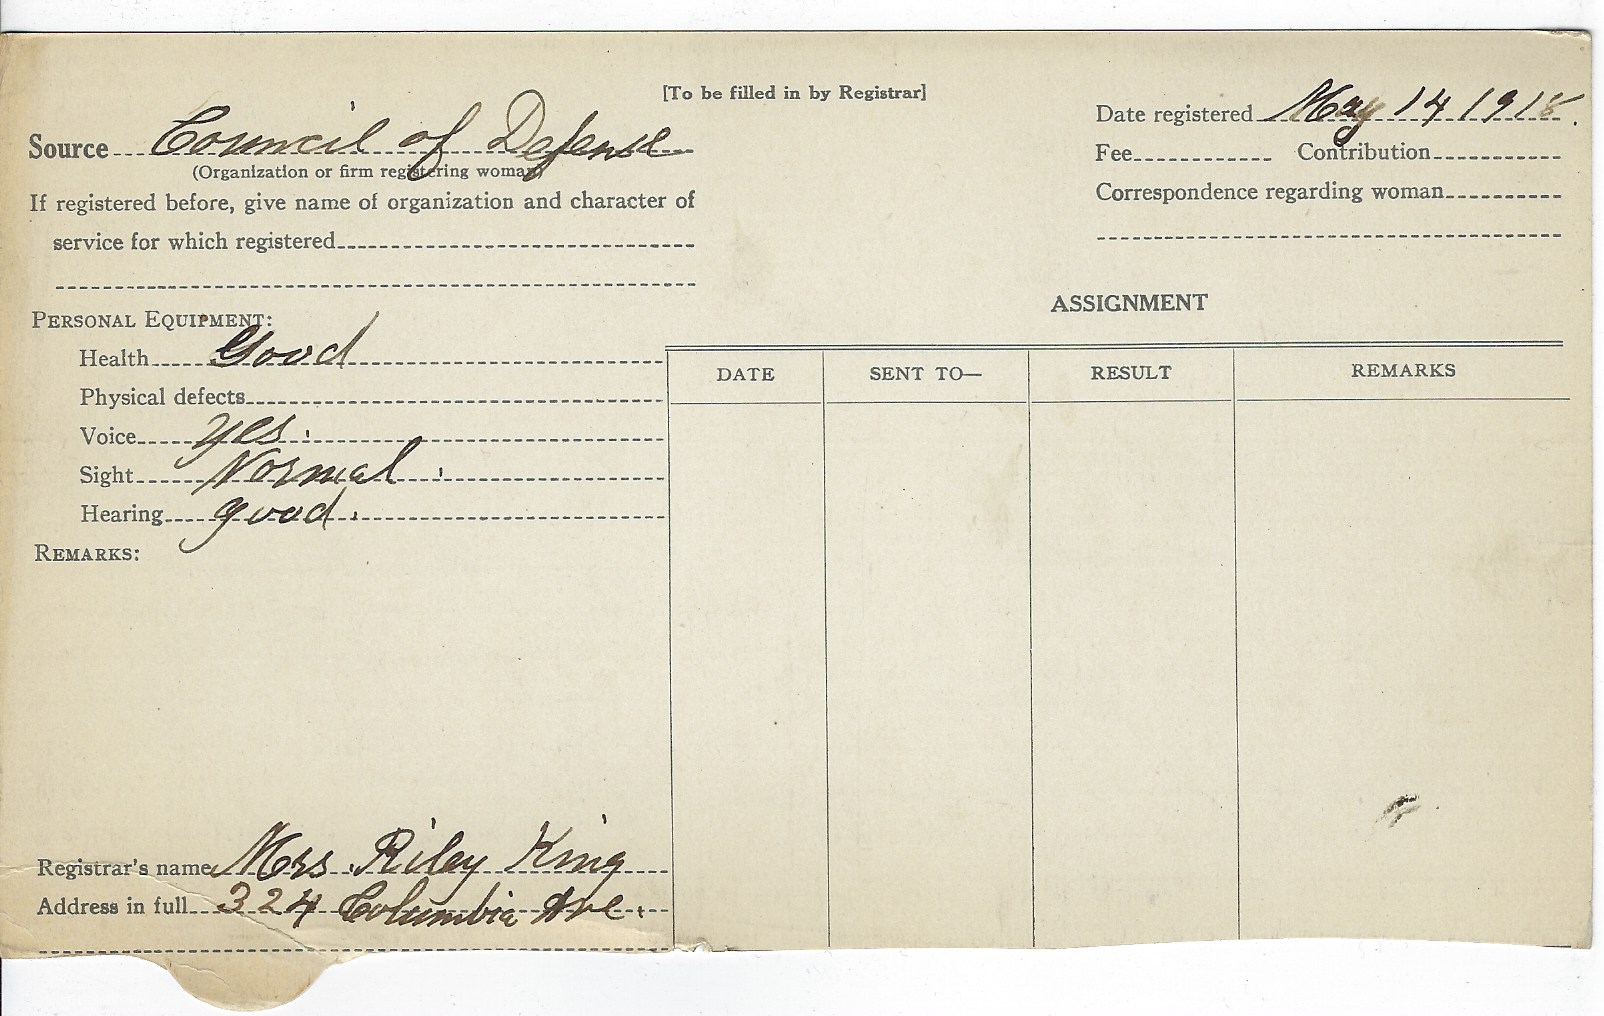 [To be filled in by Registrar]
Source Council of Defense
(Organization or firm registering woman)
If registered before, give name of organization and character of
service for which registered
Date registered May 14 1918.
Fee Contribution
Correspondence regarding woman
PERSONAL EQUIPMENT:
Health Good
Physical defects
Voice yes.
Sight Normal.
Hearing good.
REMARKS:
Registrar's name Mrs. Riley King
Address in full 324 Columbia Ave.
ASSIGNMENT
DATE SENT TO— RESULT REMARKS